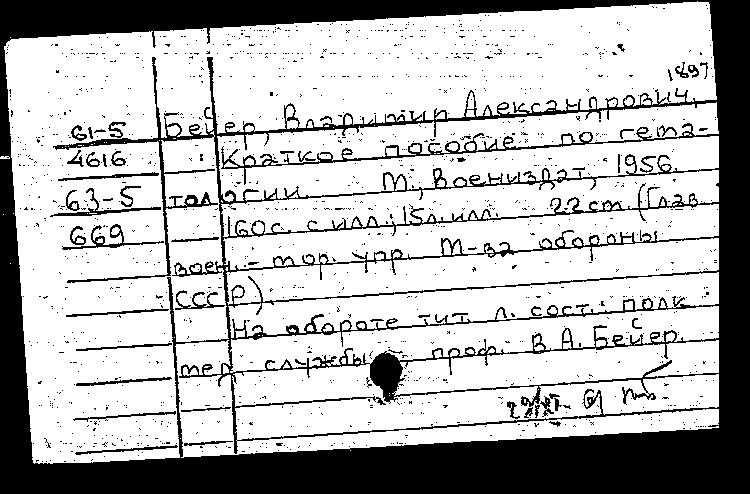 1897
61-5 Бейер, Владимир Александрович,
4616 Краткое пособие по гема-
63-5 тологии. М., Воениздат, 1956.
669 160с. с илл.; 15л. илл. 22см. (Глав
воен.-мор. упр. М-ва обороны
СССР).
На обороте тит. л. сост.: полк
мед службы проф. В.А. Бейер.
61